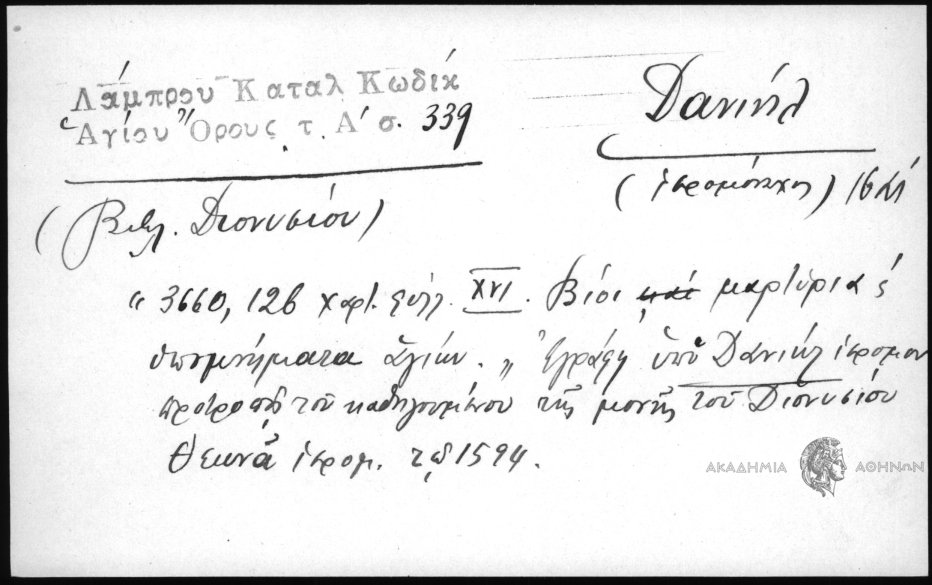 Λάμπρου Καταλ Κωδίκ
Ἁγίου Ὄρους τ. Α' σ. 339
Δανιήλ
(ἱερομόναχος)
(Βιβλ. Διονυσίου)
" 3660, 126 χαρτ. XVI. Βίοι καὶ μαρτύρια
ὑπομνήματα ἁγίων. " Ἐγράφη ὑπὸ Δανιὴλ ἱερομον
προτροπῇ τοῦ καθηγουμένου τῆς μονῆς τοῦ Διονυσίου
Θεωνᾶ ἱερομ. τῷ 1594.
ΑΚΑΔΗΜΙΑ ΑΘΗΝΩΝ